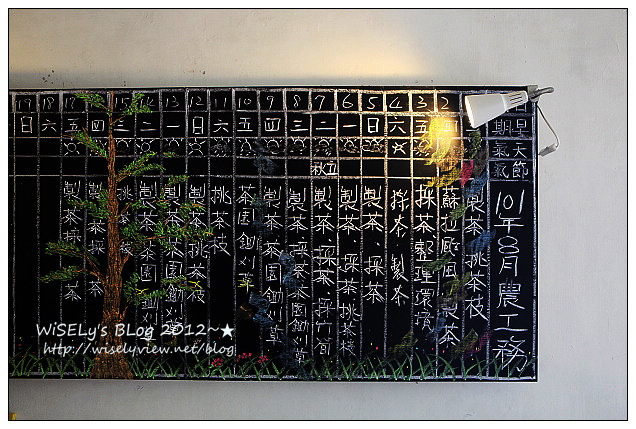 101年8月農工務
節氣
天氣
期
製茶 挑茶枝
2 四 蘇拉颱風 製茶
3 五 採茶 整理環境
4 六 採茶 製茶
5 日 製茶、採茶
6 一 製茶、採茶 挑茶枝
7 二 立秋 製茶 採茶 採竹筍
8 三 製茶 採茶 茶園鋤刈草
9 四 製茶 茶園鋤刈草
10 五 茶園鋤刈草
11 六 挑茶枝
12 日 製茶 挑茶枝
13 一 製茶 茶園鋤刈草
14 二 製茶 茶園鋤刈
15 三 挑茶枝
四 製茶 採茶
17 五 製茶 採茶
18 六
19 日
WiSELy's Blog 2012~★
http://wiselyview.net/blog